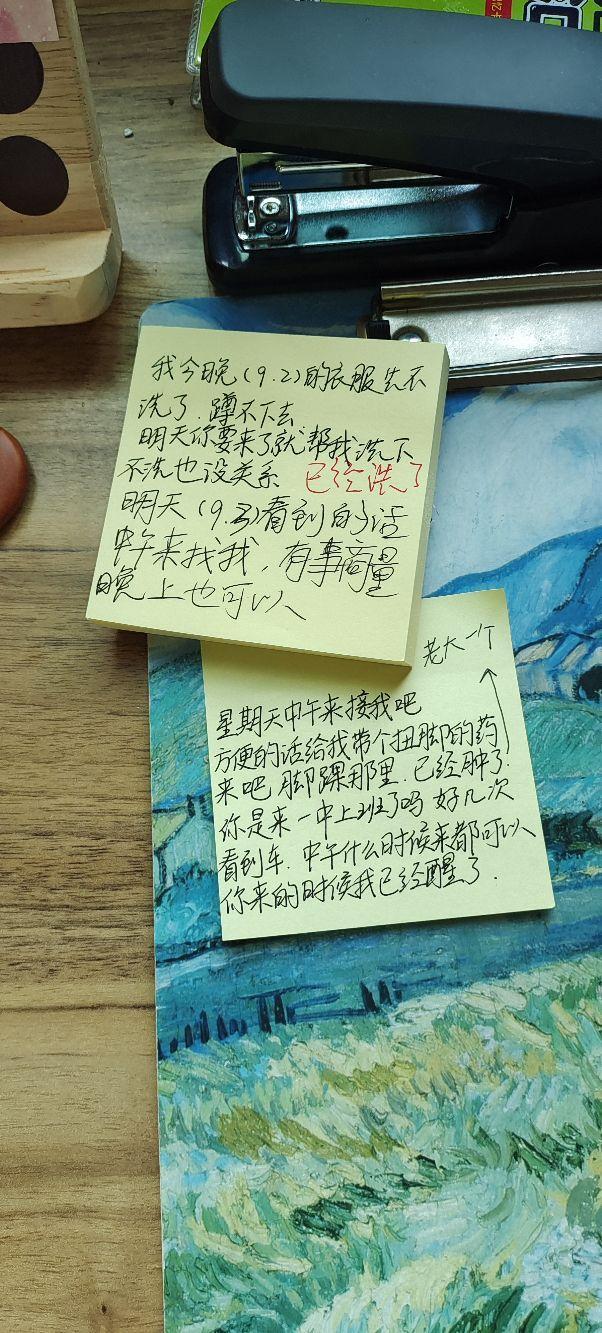 我今晚(9.2)的衣服先不
洗了.蹲不下去
明天你要来了就帮我洗下
不洗也没关系 已经洗了
明天(9.3)看到的话
中午来找我,有事商量
晚上也可以
老大一个
星期天中午来接我吧
方便的话给我带个扭脚的药
来吧 脚踝那里.已经肿了.
你是来一中上班了吗 好几次
看到车.中午什么时候来都可以
你来的时候我已经醒了.